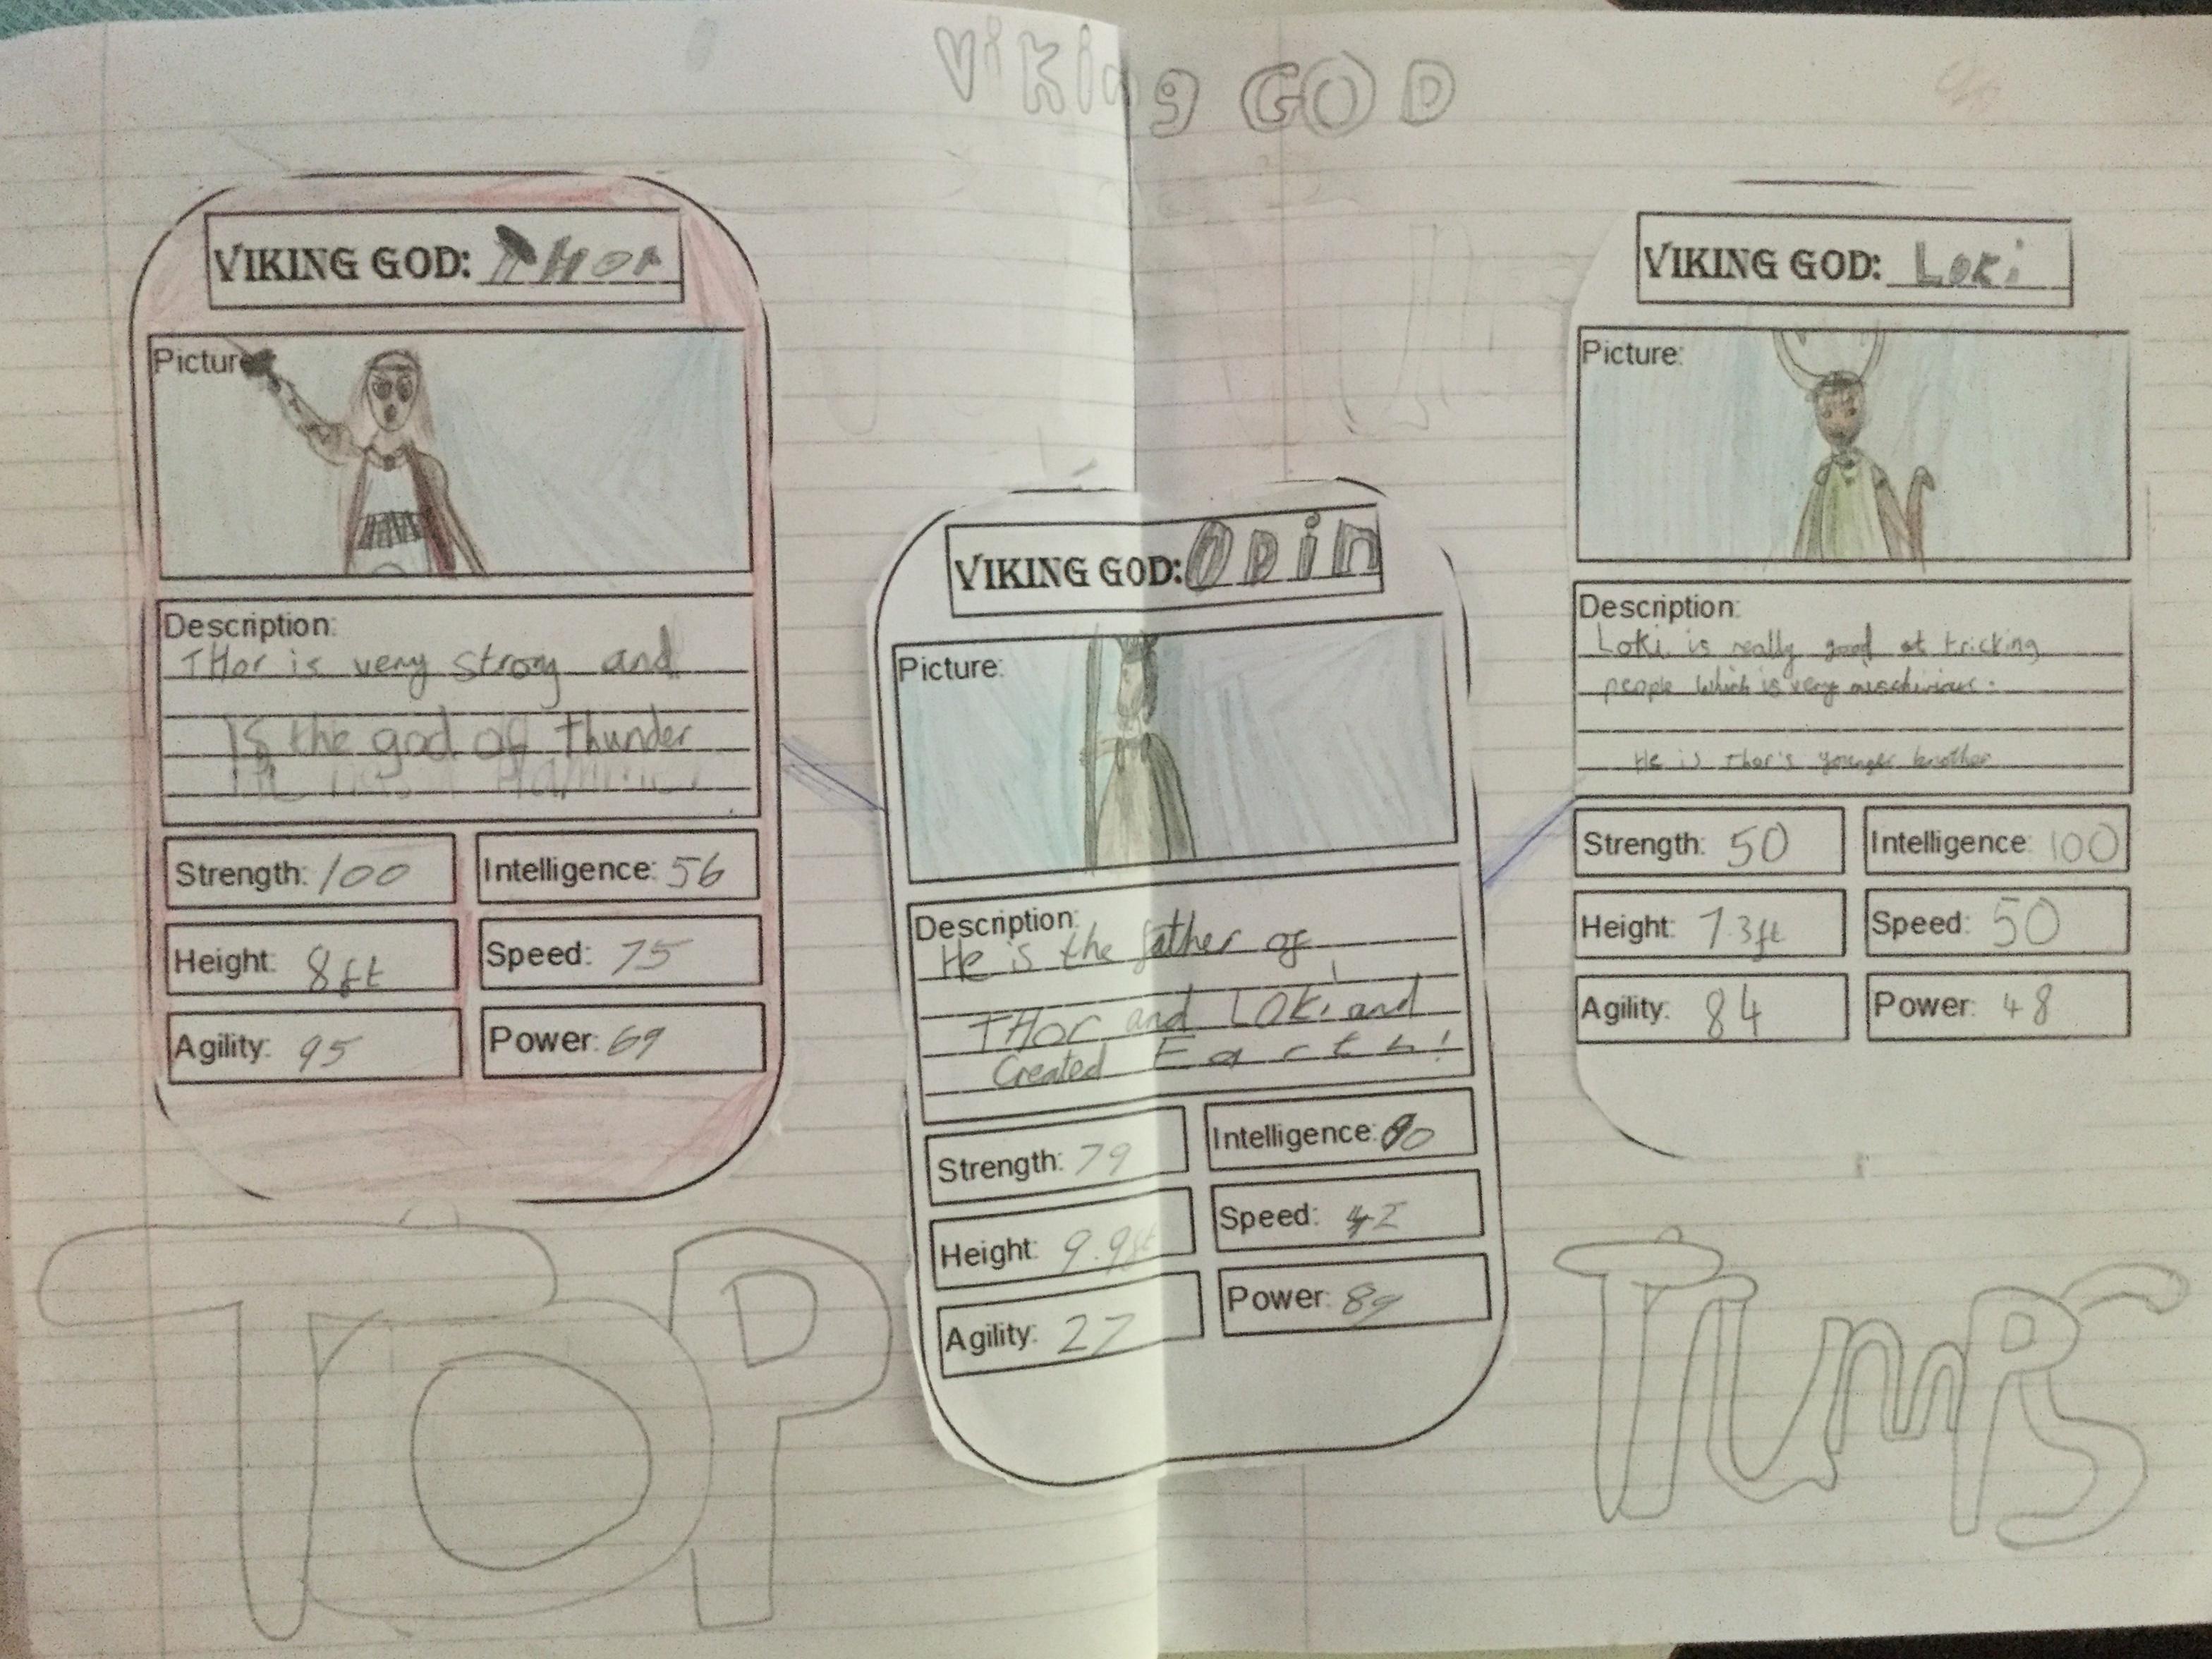 Viking GOD
VIKING GOD: THor
Picture:
Description:
THor is very strong and
Is the god of thunder
He has a Hammer.
Strength: 100
Intelligence: 56
Height: 8ft
Speed: 75
Agility: 95
Power: 69
VIKING GOD: ODin
Picture:
Description:
He is the father of
THor and LOKi and
Created Earth!
Strength: 79
Intelligence: 90
Height: 9.9ft
Speed: 42
Agility: 27
Power: 89
VIKING GOD: Loki
Picture:
Description:
Loki is really good at tricking
people which is very
He is Thor's younger brother
Strength: 50
Intelligence: 100
Height: 7.3ft
Speed: 50
Agility: 84
Power: 48
TOP
TrumPS